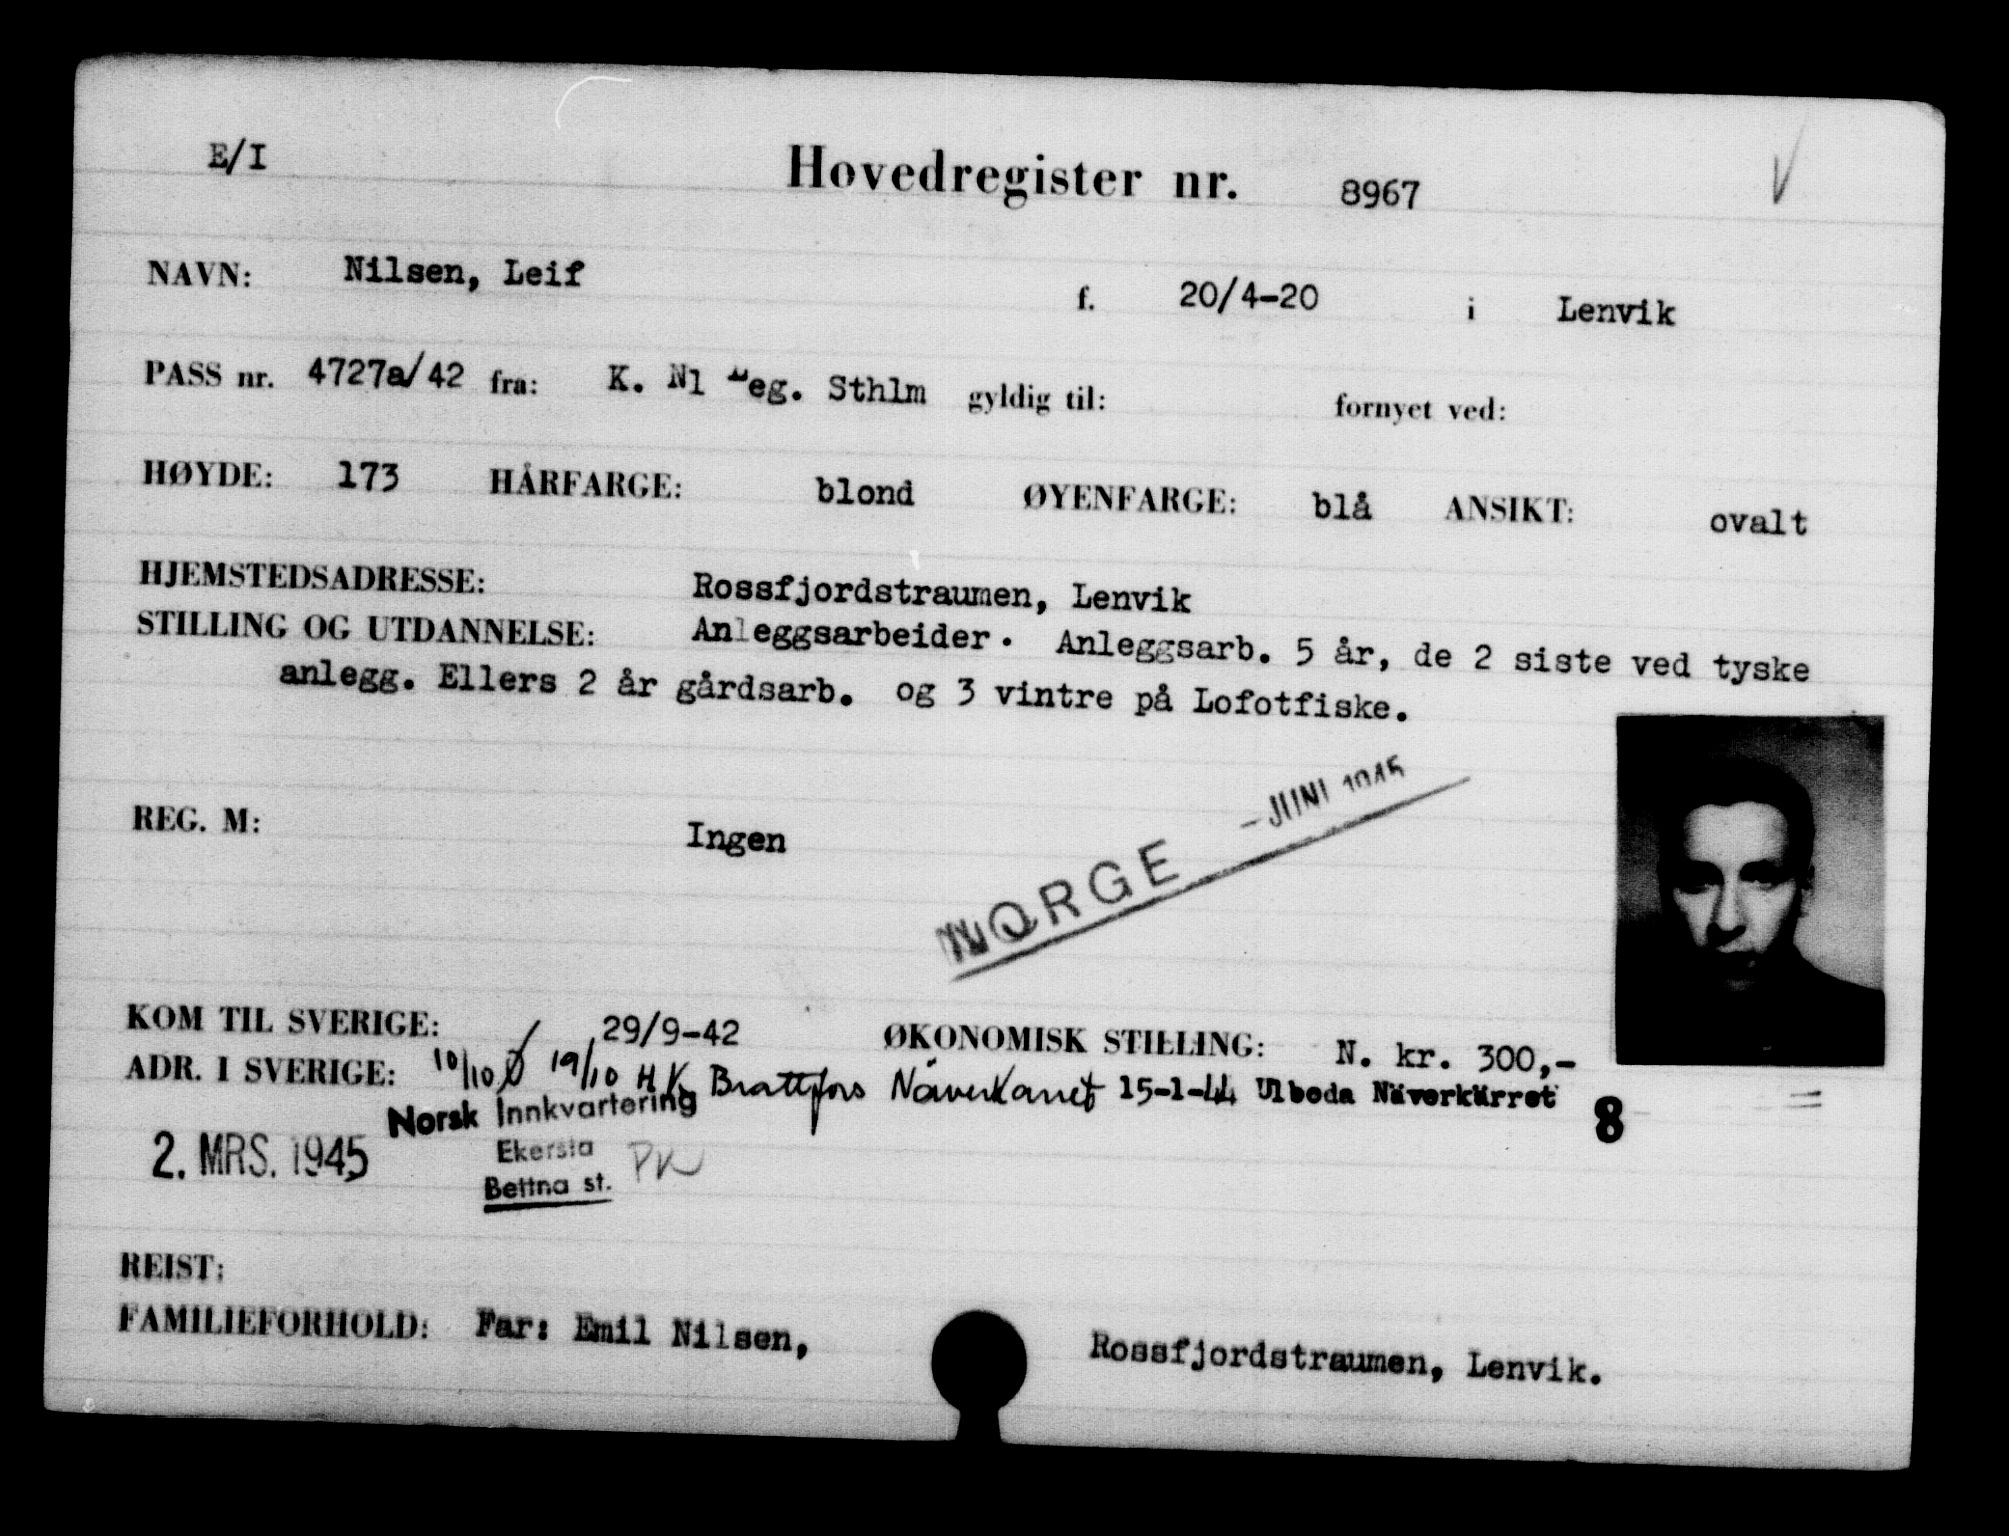 E/I
Hovedregister nr. 8967
NAVN: Nilsen, Leif f. 20/4-20 i Lenvik
PASS nr. 4727a/42 fra: K. Nl Leg. Sthlm gyldig til: fornyet ved:
HØYDE: 173 HÅRFARGE: blond ØYENFARGE: blå ANSIKT: ovalt
HJEMSTEDSADRESSE: Rossfjordstraumen, Lenvik
STILLING OG UTDANNELSE: Anleggsarbeider. Anleggsarb. 5 år, de 2 siste ved tyske
anlegg. Ellers 2 år gårdsarb. og 3 vintre på Lofotfiske.
REG. M: Ingen
NORGE - JUNI 1945
KOM TIL SVERIGE: 29/9-42 ØKONOMISK STILLING: N. kr. 300,-
ADR. I SVERIGE: 10/10 Ø 19/10 H K, Brattfors Näverkärret 15-1-44 Ulboda Näverkärret 8
Norsk Innkvartering
Ekersta
Bettna st.
2. MRS. 1945
REIST:
FAMILIEFORHOLD: Far: Emil Nilsen, Rossfjordstraumen, Lenvik.